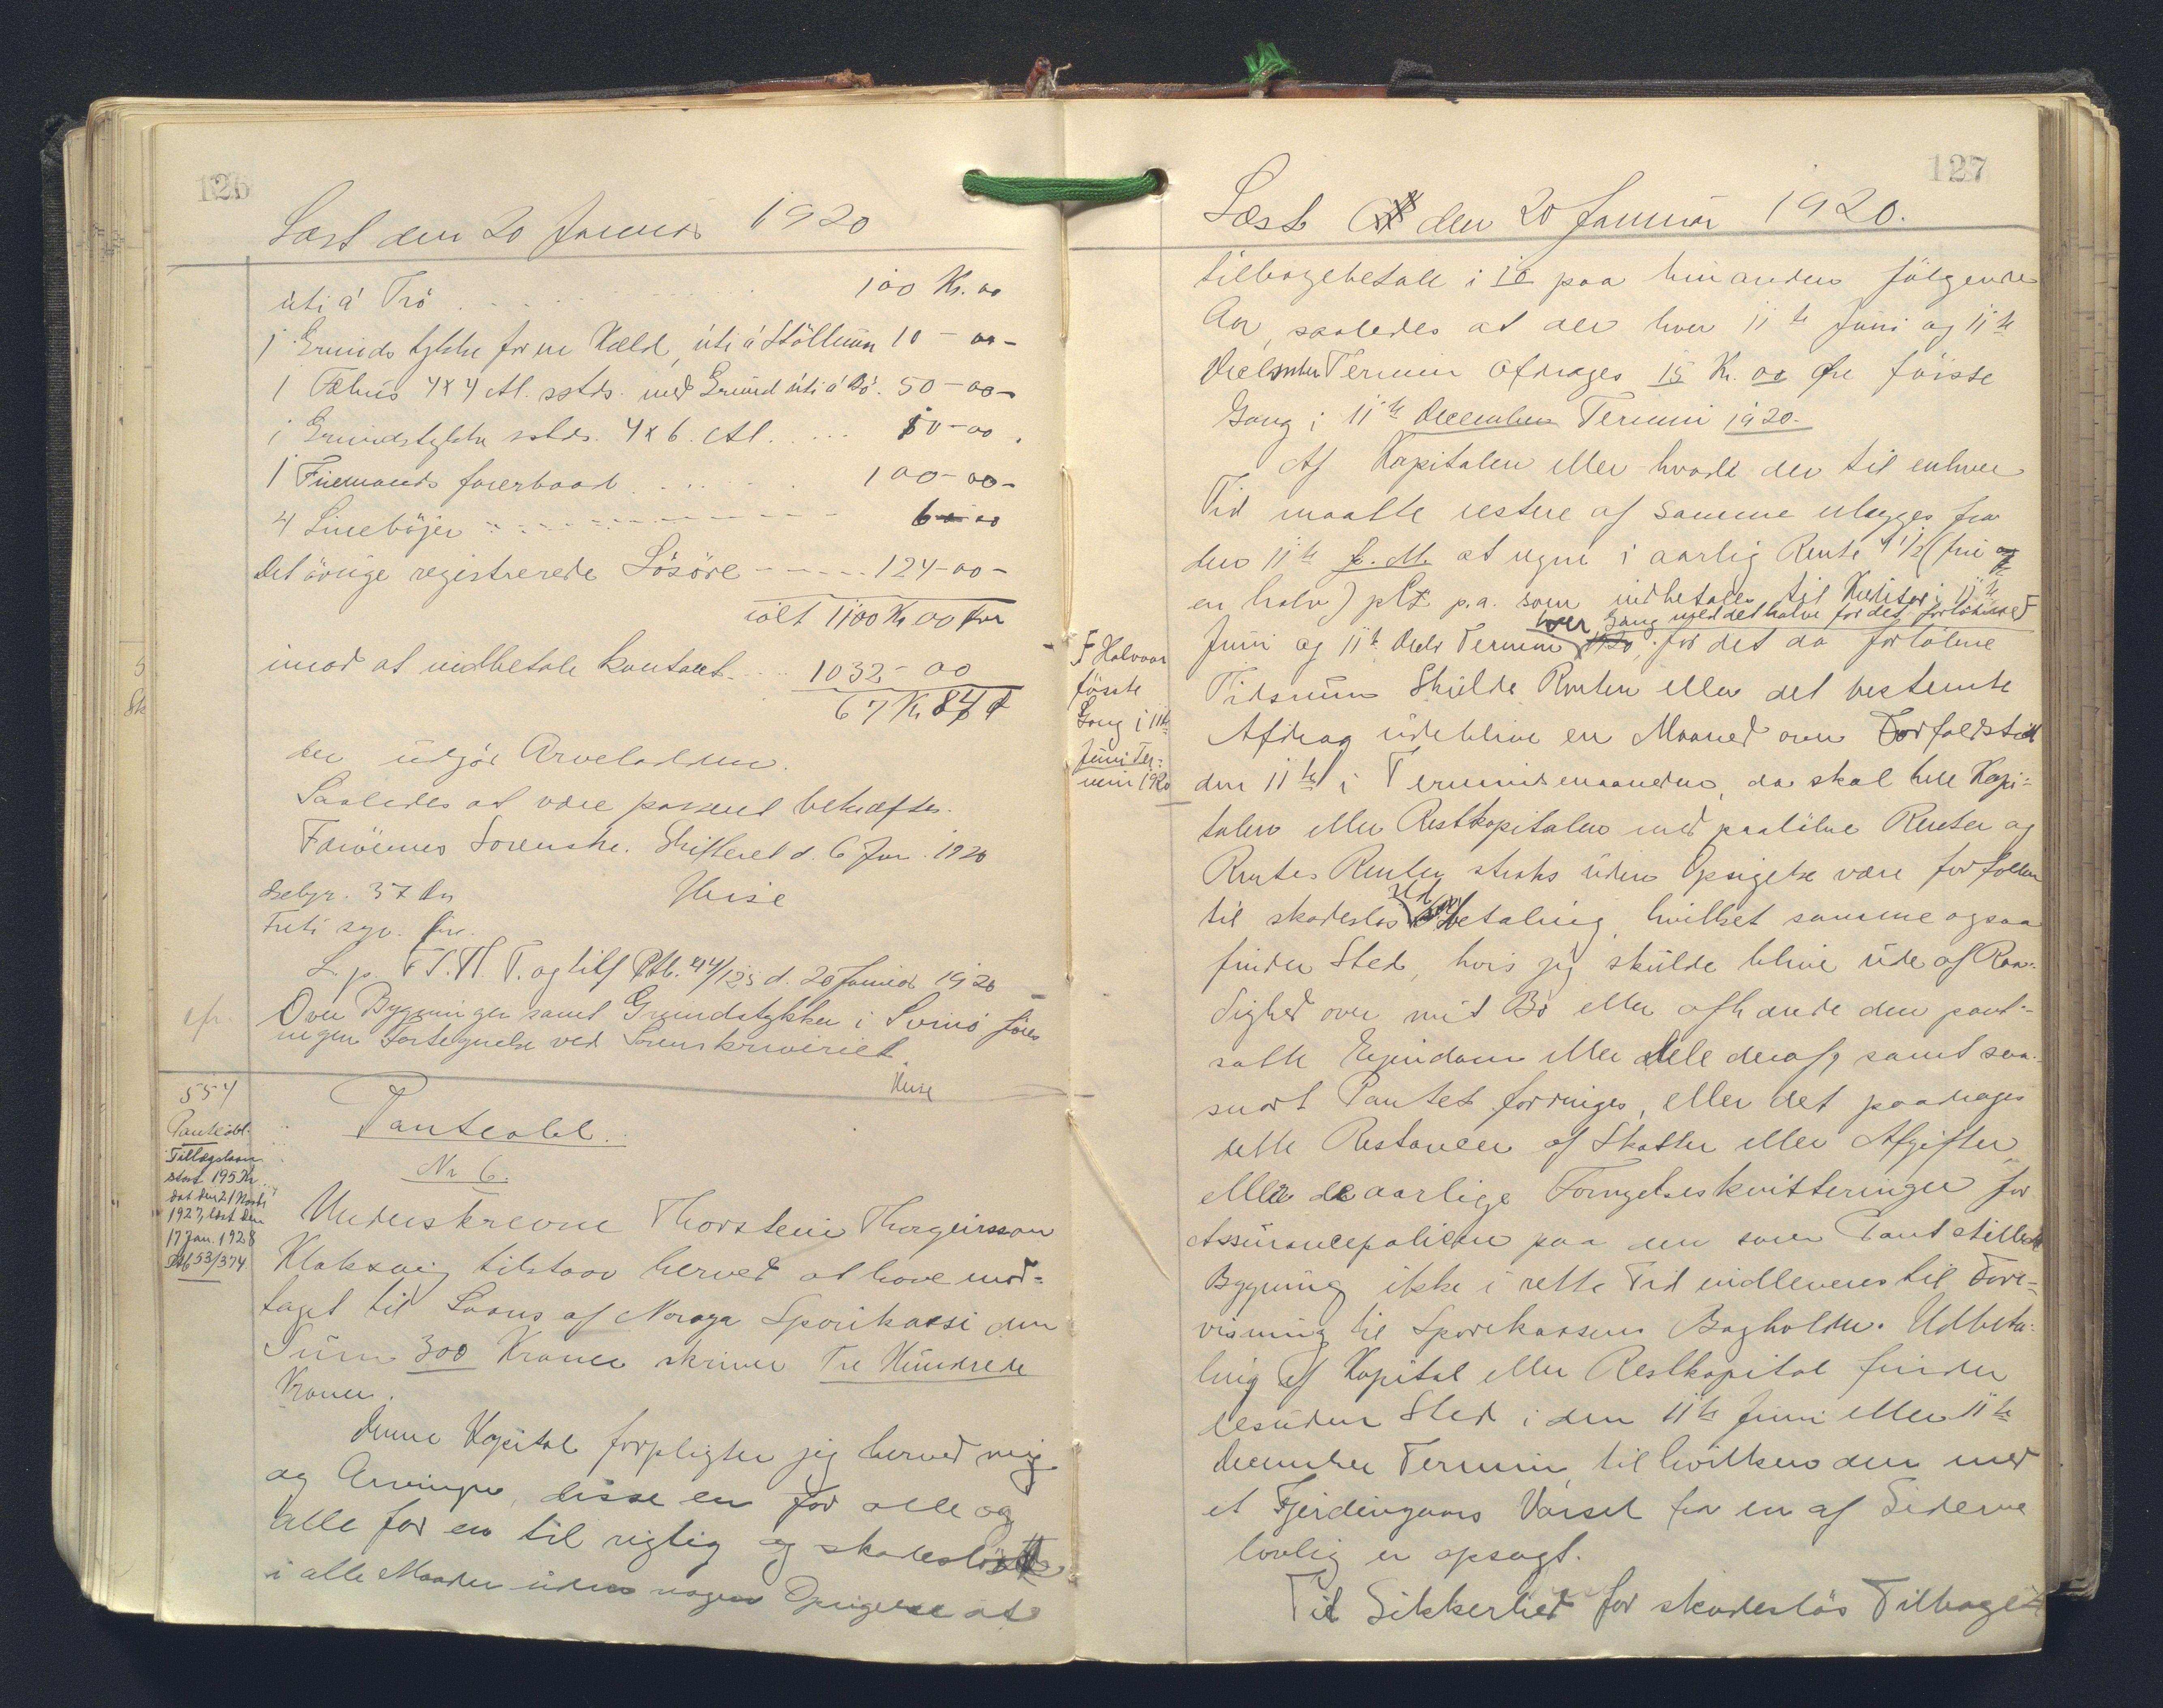 126
Læst den 20 Januar 1920
úti á Trö 100 Kr. 00
1 Grundstykke for en Kæld, úti á Støllum 10 - 00 -
1 Fæhus 4x4 Al. sstds. med Grund úti á Bö. 50 - 00 -
1 Grundstykke sstds. 4x6. Al. 50 - 00
1 Firemands farerbaad 100 - 00 -
4 Linebøjer 6 00
Det övrige registrerede Lösöre 124 - 00 -
ialt 1100 Kr 00
imod at indbetale kontant 1032 - 00
67 Kr 84
der udgör Arvelodden.
Saaledes at være passeret bekræftes.
Færöernes Sorenskr. Skifteret d. 6 Jan. 1920
Gebyr. 37 Kr
Freti syv. Kr.
L. p. F. T. H. T. og tilf Ptb. 44/125 d. 20 Januar 1920
Over Bygninger samt Grundstykker i Svinö föres
ingen Fortegnelse ved Sorenskriveriet.
554
Panteobl.
Tillægslaan
stort 195 Kr.
dat den 21 Novbr
1927, læst den
17 Jan. 1928
Ptb 53/374
Panteobl.
Nr 6.
Underskrevne Thorstein Thorgeirsson
Klaksvig tilstaar herved at have mod-
taget til Laans af Noroya Sparikassi den
Sum 300 Kroner skriver Tre Hundrede
Kroner.
Denne Kapital forpligter jeg herved mig
og Arvinger, disse en for alle og
alle for en til rigtig og skadeslös
i alle Maader uden nogen Opsigelse at
127
Læst den 20 Januar 1920.
tilbagebetale i 10 paa hinanden fölgende
Aar, saaledes at der hver 11te Juni og 11te
December Termin afdrages 15 Kr. 00 Øre förste
Gang i 11te December Termin 1920.
Af Kapitalen eller hvad der til enhver
Tid maatte restere af samme erlægges fra
den 11te f. M. at regne i aarlig Rente 4 1/2 (fire og
en halv) pCt p.a. som indbetales til Kreditor i 11te
hver Gang med det halve for det forløbne
Juni og 11te Decbr Termin 1920, for det da forlöbne
F Halvaar
første
Gang i 11te
Juni Ter-
min 1920
Tidsrum Skulde Renten eller det bestemte
Afdrag udeblive en Maaned over Forfaldstid
den 11te i Terminsmaanden, da skal hele Kapi-
talen eller Restkapitalen med paaløbne Renter og
Rentes Renter straks uden Opsigelse være forfalden
til skadeslös Udbetaling, hvilket samme ogsaa
finder Sted, hvis jeg skulde blive ude af Raa-
dighed over mit Bo eller afhænde den pant-
satte Ejendom eller dele deraf, samt saa-
snart Pantet forringes, eller det paadrages
dette Restancer af Skatter eller Afgifter
eller de aarlige Fornyelseskvitteringer for
Assurancepolicen paa den som Pant stillede
Bygning ikke i rette Tid indleveres til Fore-
visning til Sparekassens Bogholder. Udbeta-
ling af Kapital eller Restkapital finder
desuden Sted i den 11te Juni eller 11te
December Termin, til hvilken den med
et Fjerdingaars Varsel fra en af Siderne
lovlig er opsagt.
Til Sikkerhed for skadeslös Tilbage-